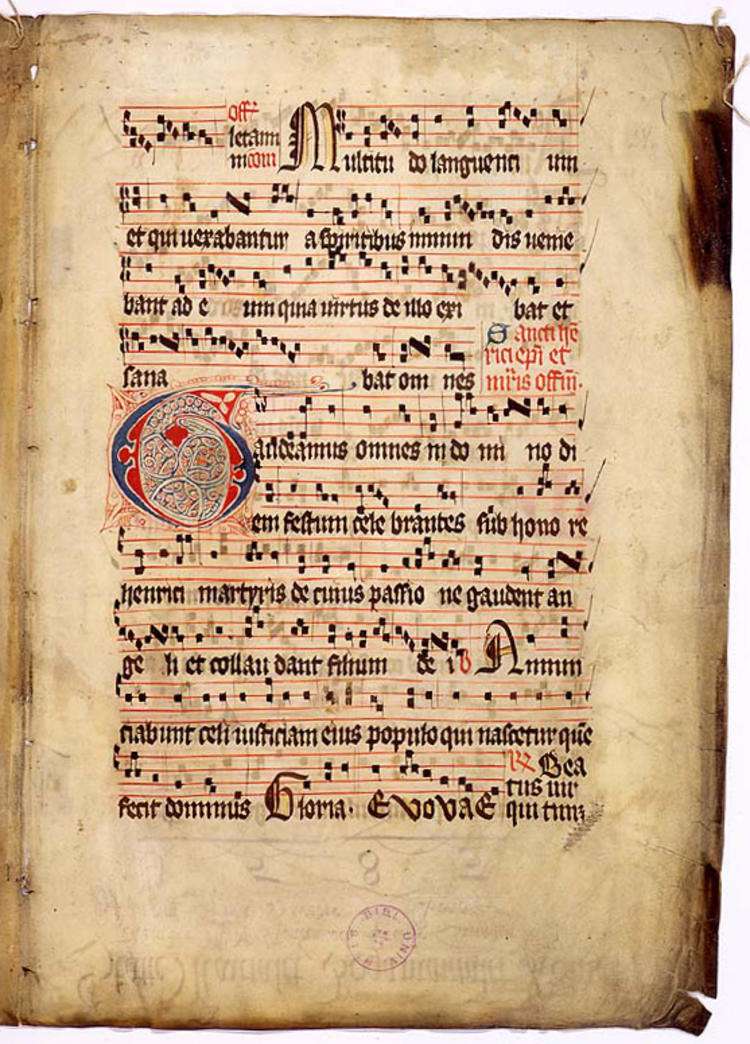 off̄
letam̄
m̄com̄ Multitu do languenti um
et qui uexabantur a spiritibus inmun dis uenie
bant ad e um quia uirtus de illo exi bat et
sana bat om nes
Sancti hē
rici ep̄i et
mr̄is offm̄.
Gaudeamus omnes in do mi no di
em festum cele brantes sub hono re
henrici martyris de cuius passio ne gaudent an
ge li et collau dant filium de i Annun
ciabunt celi iusticiam eius populo qui nascetur quē
fecit dominus Gloria. E VOVAE
Bea
tus uir
qui tim̄
BIBL UNIV